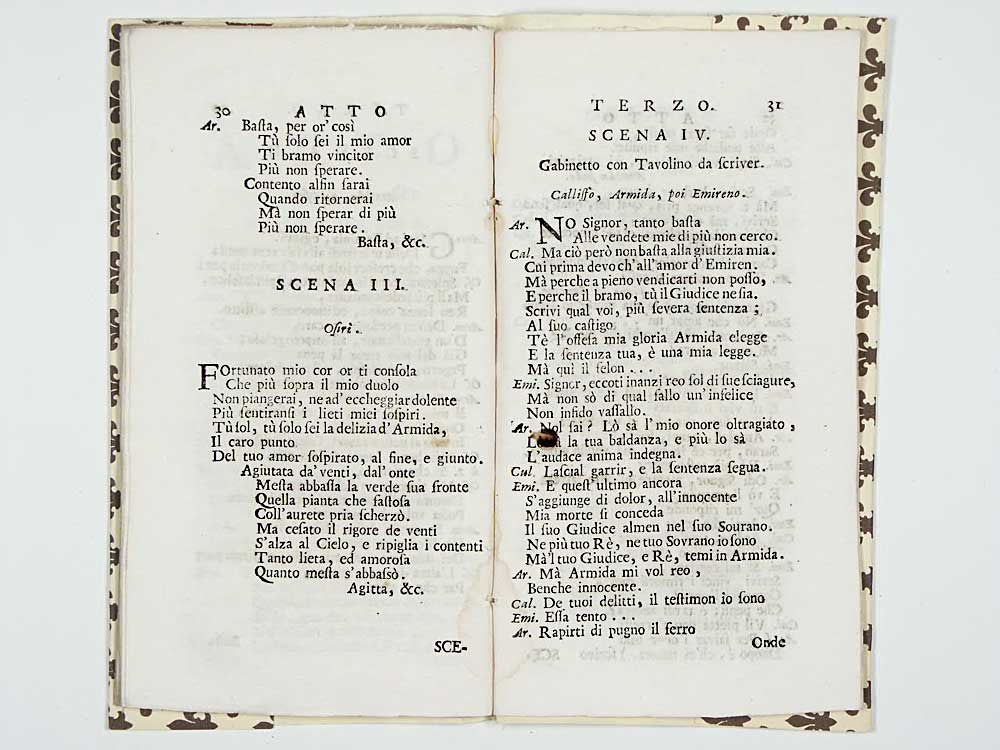 30 ATTO
Ar. Baſta, per or' così
Tù ſolo ſei il mio amor
Ti bramo vincitor
Più non ſperare.
Contento alfin ſarai
Quando ritornerai
Mà non ſperar di più
Più non ſperare.
Baſta, &c.
SCENA III.
Oſiri.
FOrtunato mio cor or ti conſola
Che più ſopra il mio duolo
Non piangerai, ne ad' eccheggiar dolente
Più ſentiranſi i lieti miei ſoſpiri.
Tù ſol, tù ſolo ſei la delizia d'Armida,
Il caro punto
Del tuo amor ſoſpirato, al fine, e giunto.
Agiutata da' venti, dal' onte
Meſta abbaſſa la verde ſua fronte
Quella pianta che faſtoſa
Coll'aurete pria ſcherzò.
Ma ceſato il rigore de venti
S'alza al Cielo, e ripiglia i contenti
Tanto lieta, ed amoroſa
Quanto meſta s'abbaſsò.
Agitta, &c.
SCE-
TERZO. 31
SCENA IV.
Gabinetto con Tavolino da ſcriver.
Calliſſo, Armida, poi Emireno.
Ar. NO Signor, tanto baſta
Alle vendete mie di più non cerco.
Cal. Ma ciò però non baſta alla giuſtizia mia.
Cui prima devo ch'all'amor d'Emiren.
Mà perche a pieno vendicarti non poſſo,
E perche il bramo, tù il Giudice ne ſia.
Scrivi qual voi, più ſevera ſentenza;
Al ſuo caſtigo
Tè l'offeſa mia gloria Armida elegge
E la ſentenza tua, è una mia legge.
Mà quì il felon . . .
Emi. Signor, eccoti inanzi reo ſol di ſue ſciagure,
Mà non sò di qual fallo un'infelice
Non infido vaſſallo.
Ar. Nol ſai? Lò sà l'mio onore oltragiato,
la tua baldanza, e più lo sà
L'audace anima indegna.
Cal. Laſcial garrir, e la ſentenza ſegua.
Emi. E queſt'ultimo ancora
S'aggiunge di dolor, all'innocente
Mia morte ſi conceda
Il ſuo Giudice almen nel ſuo Sourano.
Ne più tuo Rè, ne tuo Sovrano io ſono
Mà'l tuo Giudice, e Rè, temi in Armida.
Ar. Mà Armida mi vol reo,
Benche innocente.
Cal. De tuoi delitti, il teſtimon io ſono
Emi. Eſſa tento . . .
Ar. Rapirti di pugno il ferro
Onde